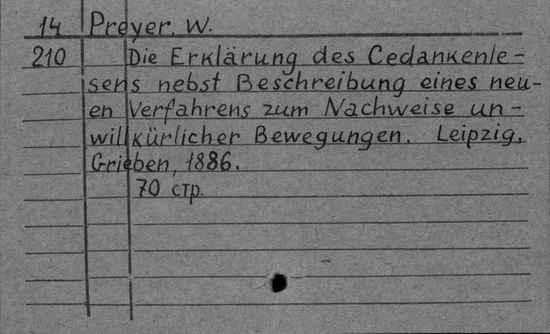 14 Preyer, W.
210 Die Erklärung des Cedankenle-
sens nebst Beschreibung eines neu-
en Verfahrens zum Nachweise un-
willkürlicher Bewegungen. Leipzig,
Grieben, 1886.
70 стр.